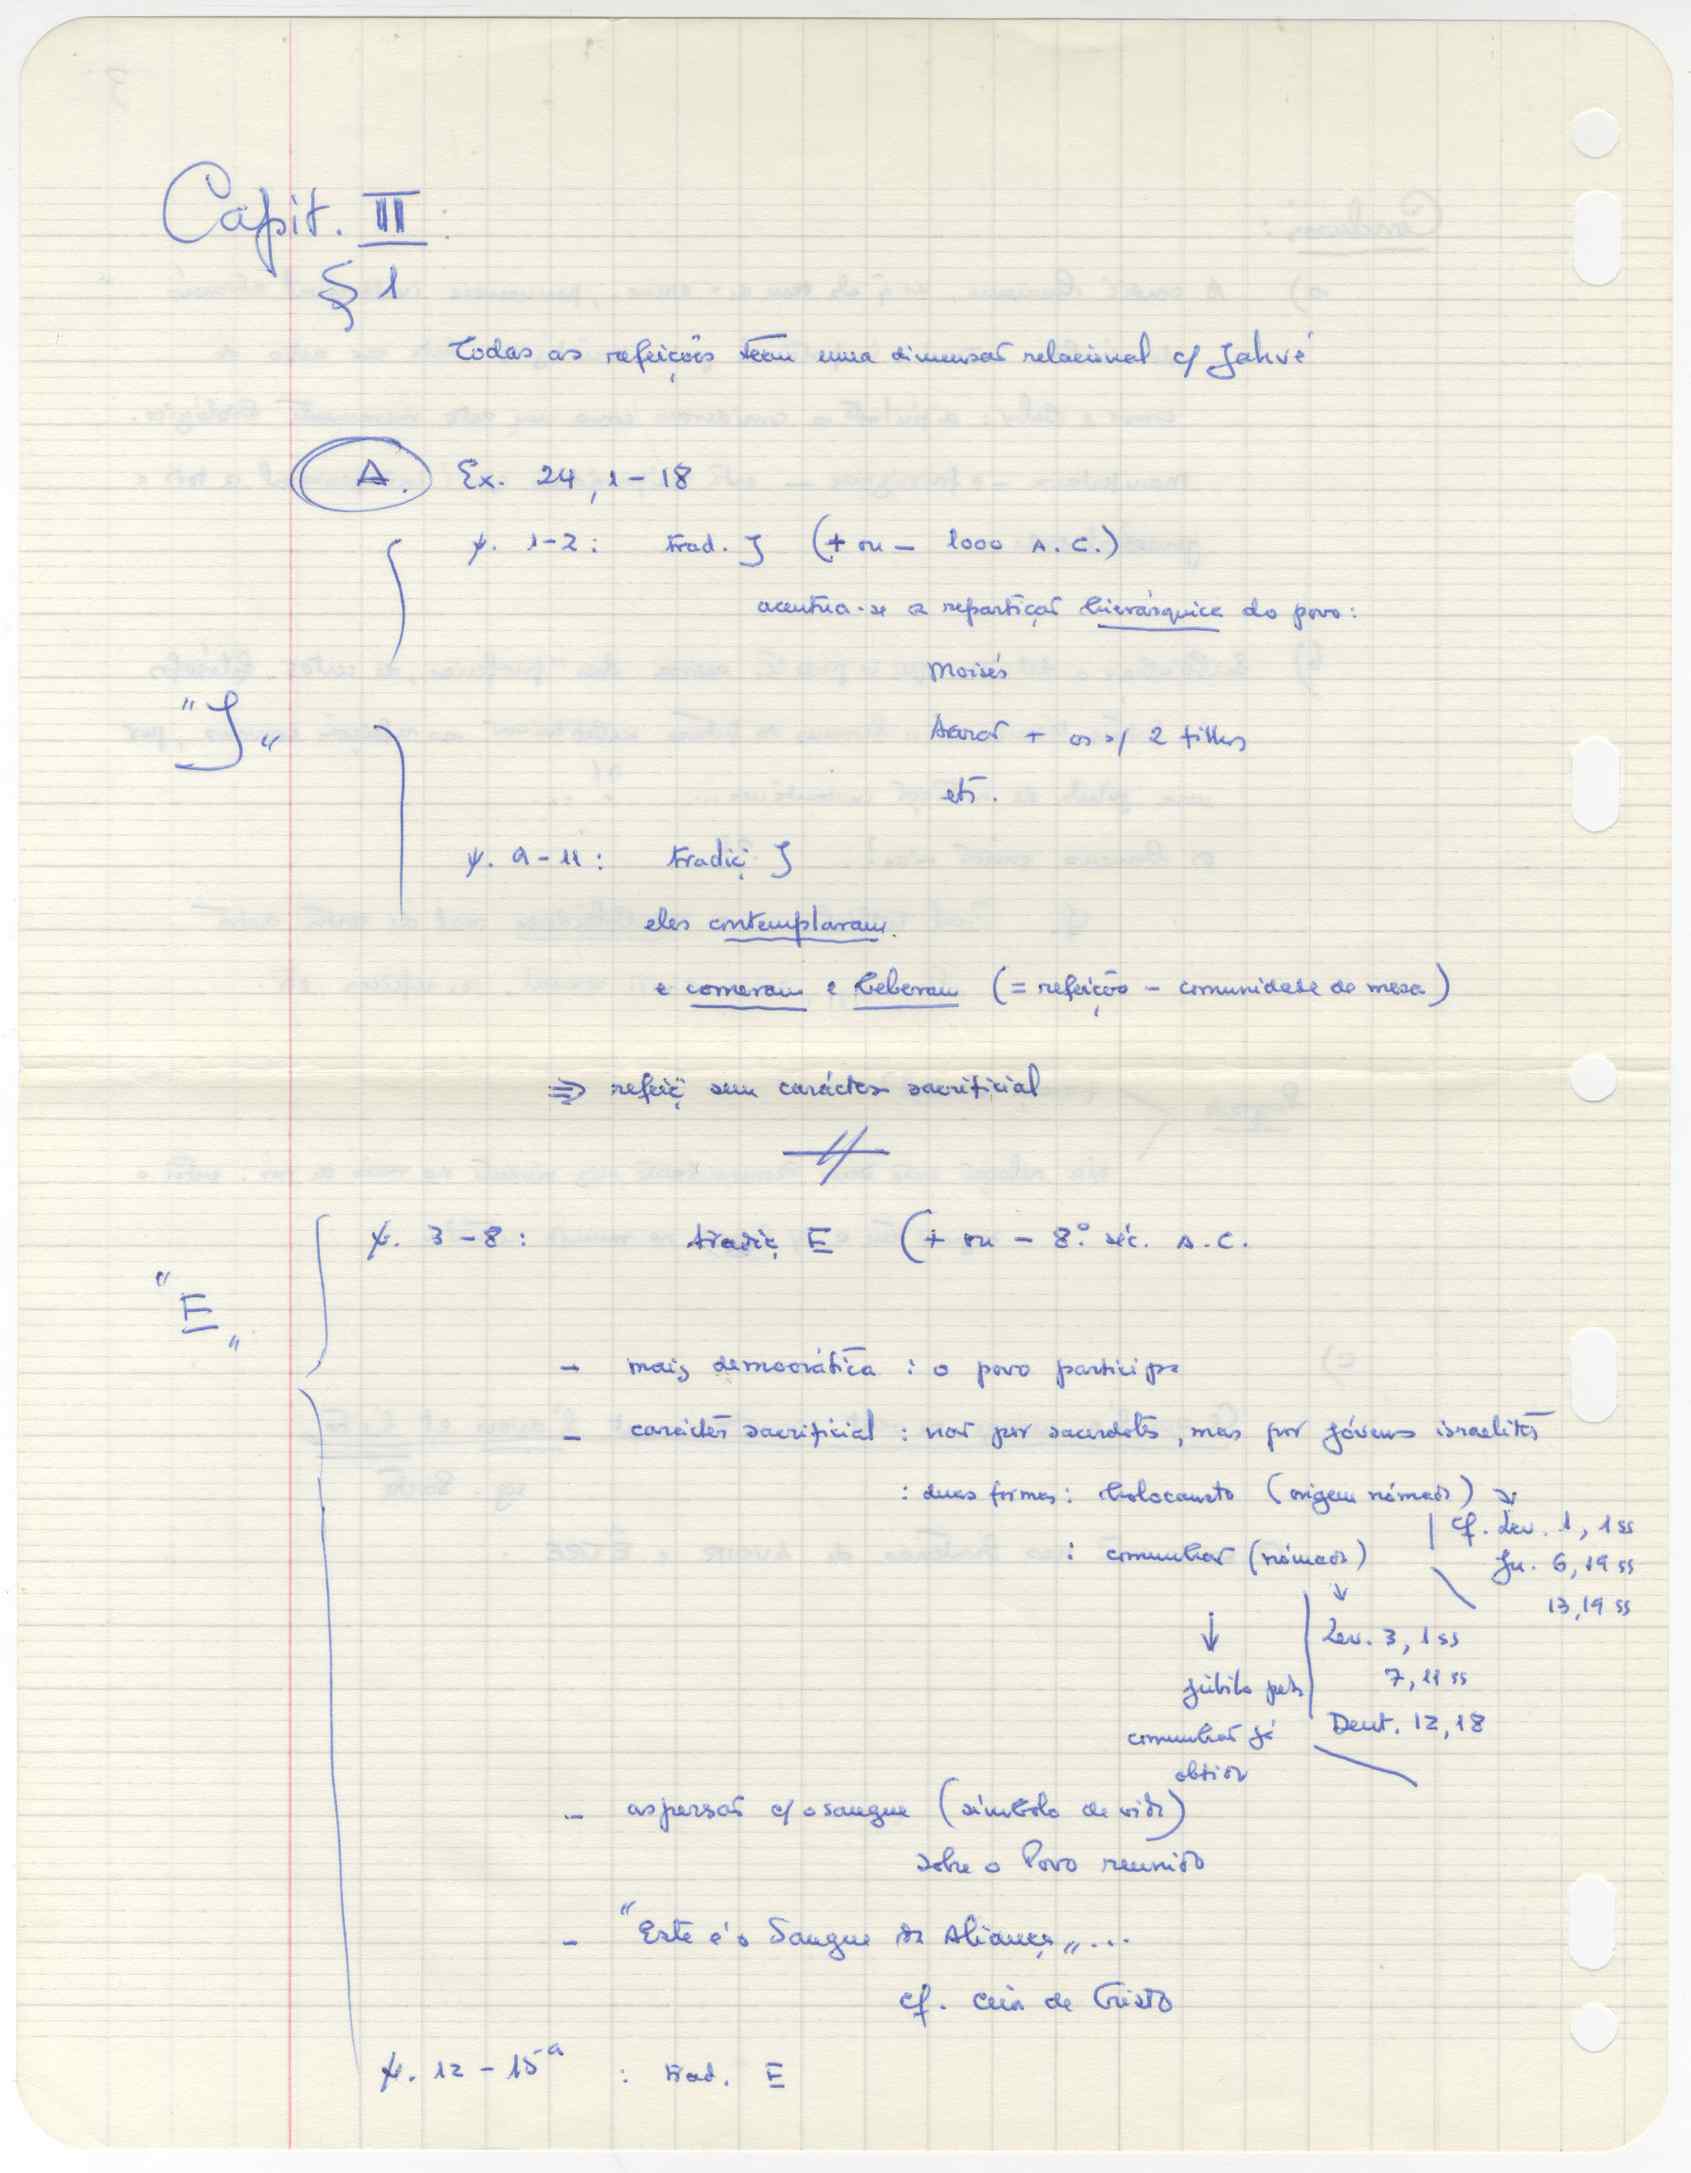 Capit. II
§ 1
Todas as refeições têm uma dimensão relacional c/ Jahvé
A. Ex. 24, 1-18
v. 1-2: trad. J (+ ou - 1000 A.C.)
acentua-se a repartição hierárquica do povo:
Moisés
"J"
Aarão + os s/ 2 filhos
etc.
v. 9-11: tradiç. J
eles contemplaram.
e comeram e beberam (= refeição - comunidade de mesa)
⇒ refeiç. sem carácter sacrificial
v. 3-8: tradiç. E (+ ou - 8.º séc. A.C.
"E"
- mais democrática : o povo participa
- carácter sacrificial : não por sacerdotes, mas por jóvens israelitas
: duas formas : holocausto (origem nómada) ↘
cf. Lev. 1, 1 ss
: comunhão (nómada)
Ju. 6, 19 ss
13, 19 ss
↓ ↓ Lev. 3, 1 ss
júbilo pela 7, 11 ss
comunhão já Deut. 12, 18
obtida
- aspersão c/ o sangue (símbolo de vida)
sobre o Povo reunido
- "Este é o Sangue da Aliança"...
cf. Ceia de Cristo
v. 12-15ª : trad. E